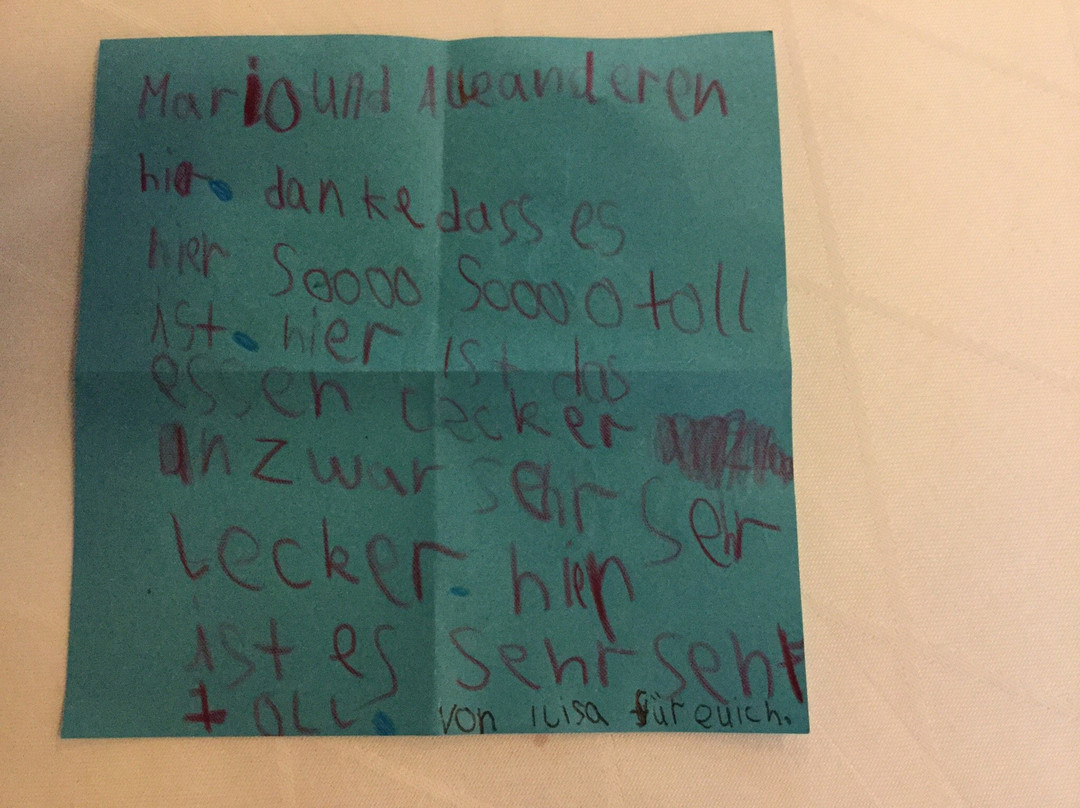 Mario und Alle anderen
hier. danke dass es
hier Soooo Soooo toll
ist. hier ist das
essen lecker
un zwar sehr sehr
Lecker. hier
ist es sehr sehr
toll. von ilisa für euich.